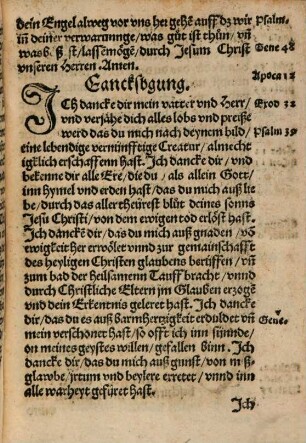 dein Engel alweg vor vns her gehe auff dz wir Psalm.
in deiner verwarunnge, was gůt ist thůn, vnd
was bőß ist, lassen mőge, durch Jesum Christ Gene 48
vnseren Herren. Amen.
Dancksagung. Apoca 12
ICh dancke dir mein vatter vnd Herr, Exod 32
vnd verjähe dich alles lobs vnd preiße
werd das du mich nach deynem bild, Psalm 39
eine lebendige vernünfftige Creatur, almecht
igklich erschaffenn hast. Ich dancke dir, vnd
bekenne dir alle Ere, die du, als allein Gott,
inn hymel vnd erden hast, das du mich auß lie
be, durch das aller theürest blůt deines sonns
Jesu Christi, von dem ewigen tod erlőst hast.
Ich dancke dir, das du mich auß gnaden, vō
ewigkeit her erwőlet vnnd zur gemainschafft
des heyligen Christen glaubens berůffen, vñ
zum bad der heilsamenn Tauff bracht, vnnd
durch Christliche Eltern jm Glauben erzogē
vnd dein Erkentnis geleret hast. Ich dancke
dir, das du es auß barmhertzigkeit erduldet vñ Gene
mein verschonet hast, so offt ich inn sünnde,
on meines geystes willen, gefallen binn. Ich
dancke dir, das du mich auß gunst, von mß,
glawbe, jrtum vnd beylere erretet, vnnd inn
alle warheyt gefüret hast.
Ich